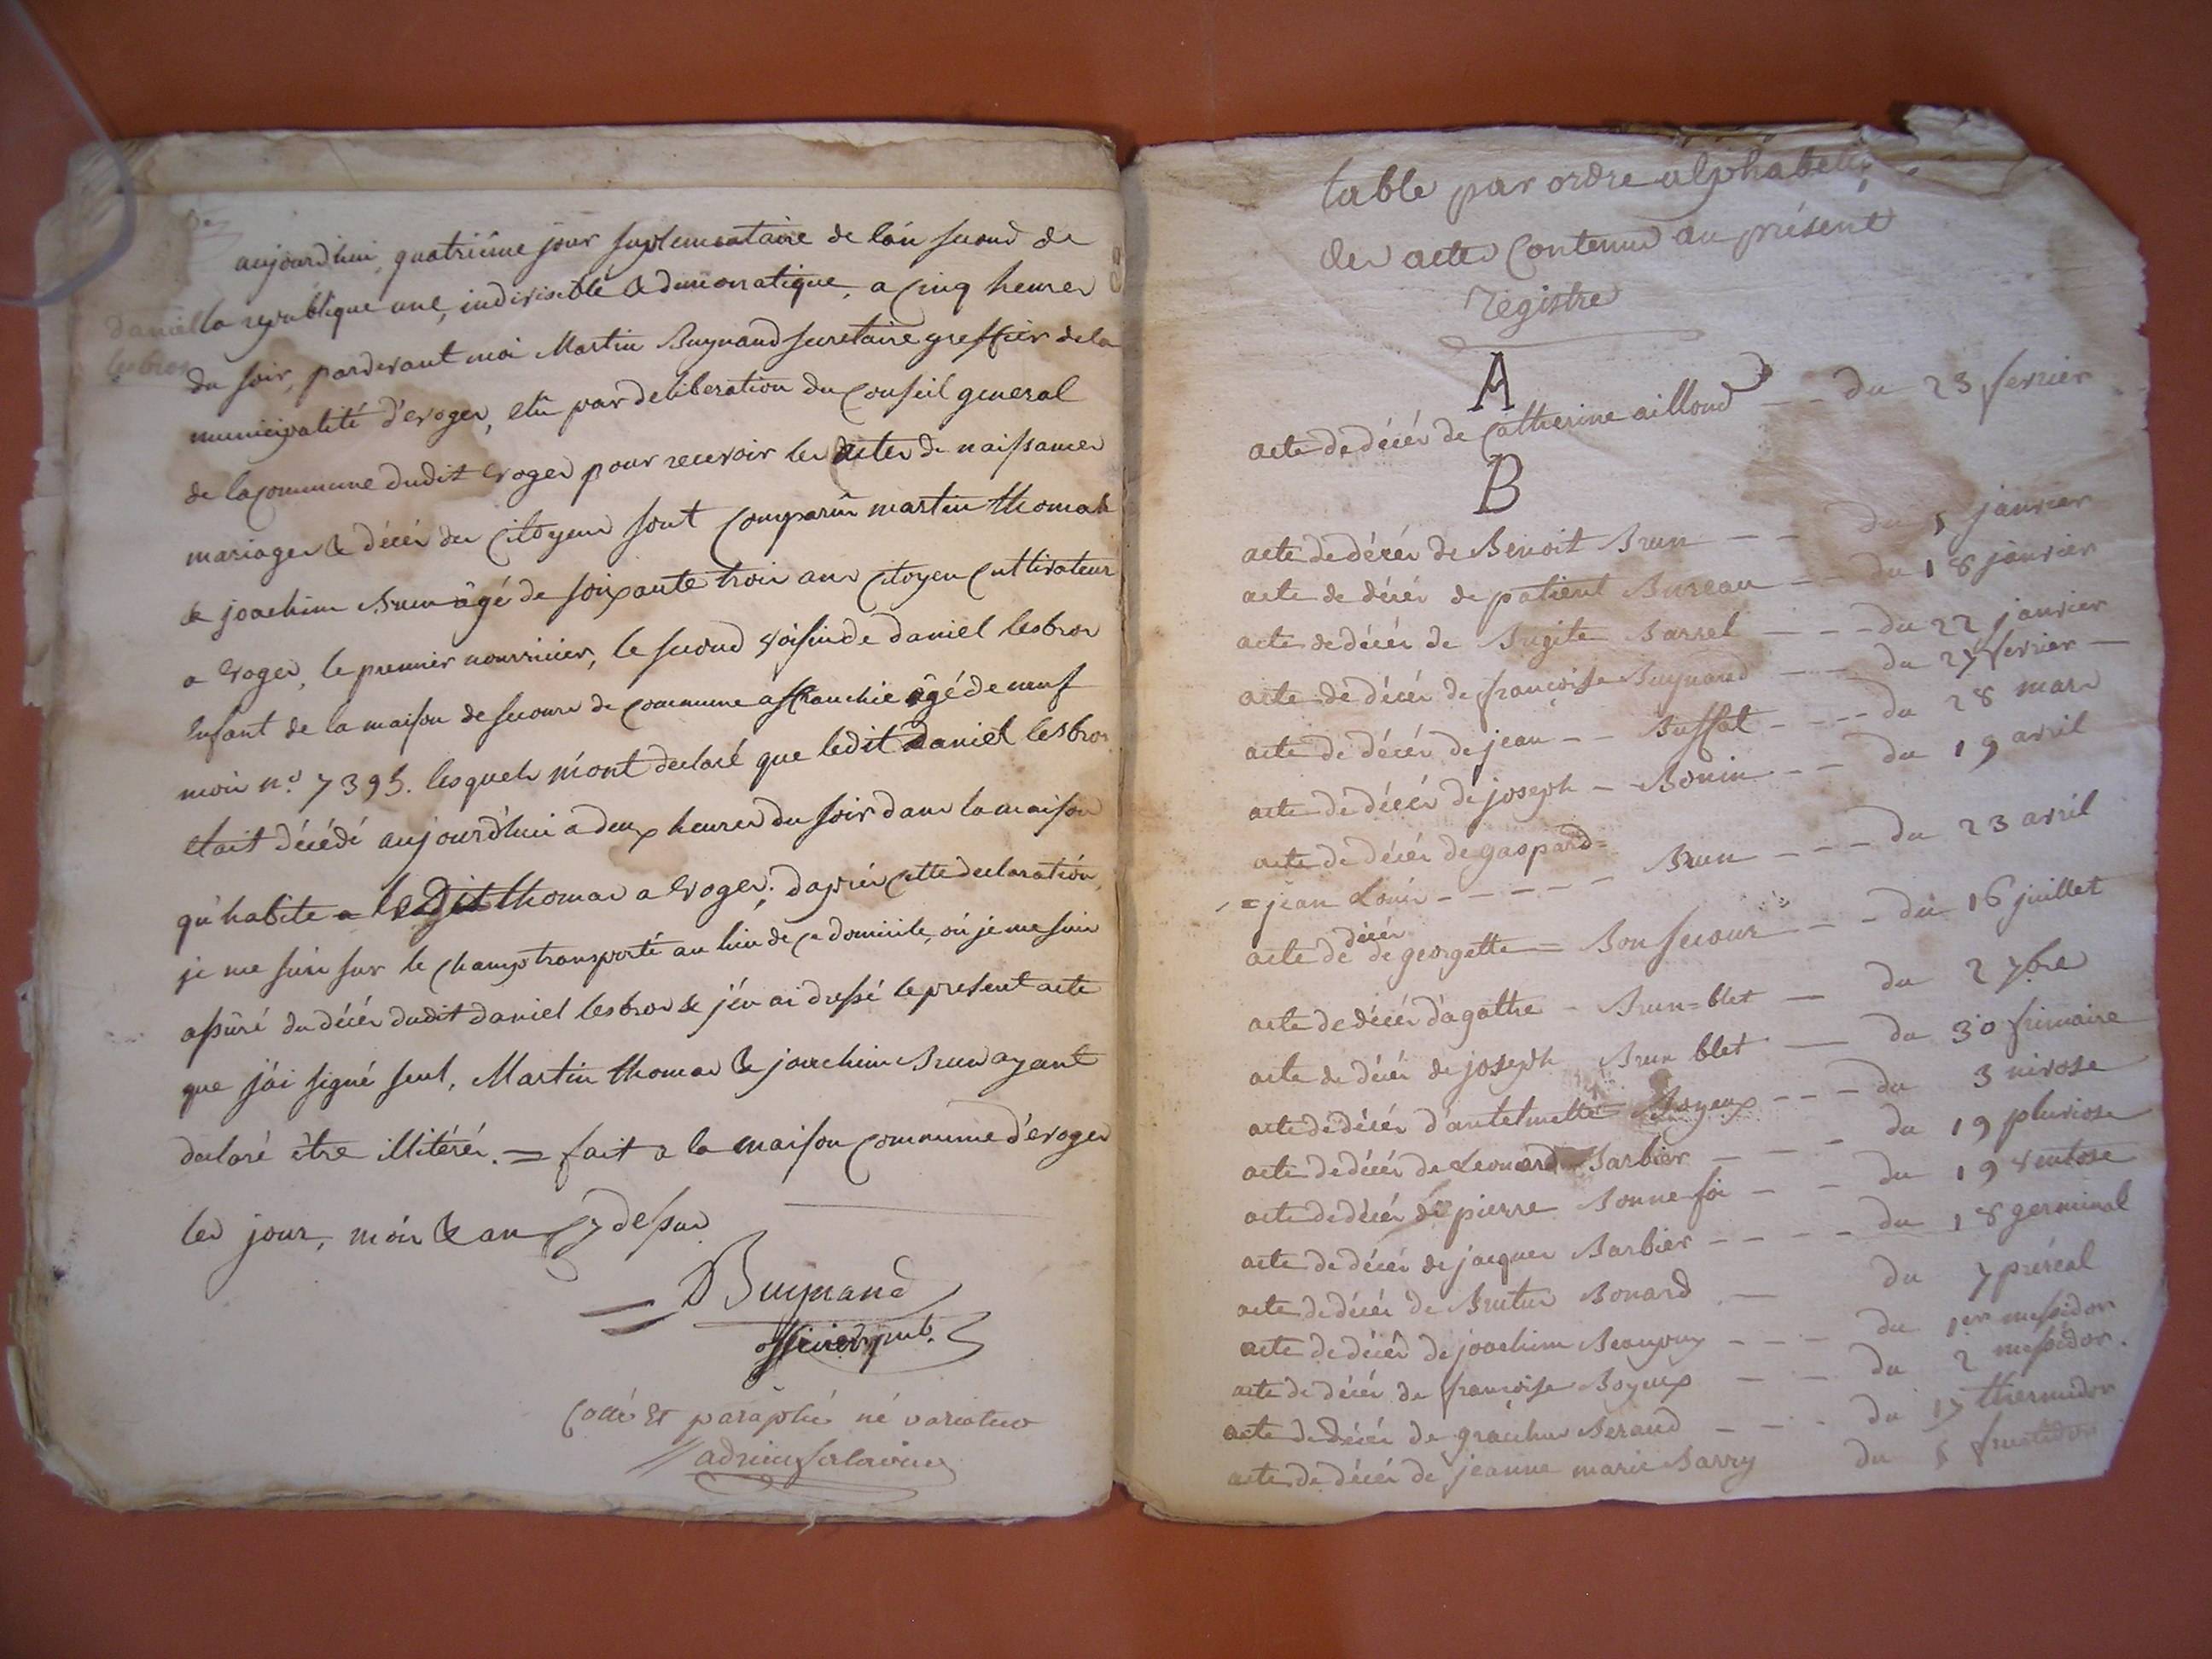 Daniel
lesbros
aujourdhui, quatriême jour suplementaire de l'an second de
la republique une, indivisible & democratique, a cinq heures
du soir, pardevant moi Martin Buynand secretaire greffier de la
municipalité d'evoges, elû par deliberation du conseil general
de la commune dudit Evoges pour recevoir les actes de naissances
mariages & décès des citoyens sont comparûs martin thomas
& joachim Brun âgé de soixante trois ans citoyen cultivateur
a Evoges, le premier nourricier, le second voisin de daniel lesbros
enfant de la maison de secours de commune affranchie âgé de neuf
mois n.° 7395. lesquels m'ont declaré que ledit daniel lesbros
etait décédé aujourd'hui a deux heures du soir dans la maison
qu'habite ledit thomas a Evoges; d'après cette declaration,
je me suis sur le champ transporté au lieu de ce domicile, où je me suis
assûré du décès dudit daniel lesbros & j'en ai dressé le present acte
que j'ai signé seul, Martin thomas & joachim Brun ayant
declaré être illitérés. = fait a la maison commune d'evoges
les jour, mois & an cy dessus
Buynand
officier pub.
Cotté Et paraphé né varietur
table par ordre alphabetiq
des actes contenus au présent
registre
A
acte de décès de Catherine ailloud -- du 23 fevrier
B
acte de décès de Benoit Brun -- du 5 janvier
acte de décès de patient Bureau -- du 18 janvier
acte de décès de Bugite Barrel --- du 22 janvier
acte de décès de françoise Buynand -- du 27 fevrier -
acte de décès de jean -- Buffat ---- du 28 mars
acte de décès de joseph - Bonin -- du 19 avril
acte de décès de gaspard=
=jean Louis ----- Brun --- du 23 avril
décès
acte de de georgette = Bon secours -- du 16 juillet
acte de décès d'agathe - Brun=blet - du 2 7bre
acte de décès de joseph Brun blet - du 30 frimaire
acte de décès d'antelmette Boyeux --- du 3 nivose
acte de décès de Leonard Barbier --- du 19 pluviose
acte de décès de pierre Bonnefoi -- du 19 ventose
acte de décès de jacques Barbier ---- du 18 germinal
acte de décès de Brutus Bonard - du 7 préréal
acte de décès de joachim --- du 1er messidor
acte de décès de françoise Boyeux -- du 2 messidor.
acte de décès de gracchus Beraud --- du 17 thermidor
acte de décès de jeanne marie Barry du 5 fructidor